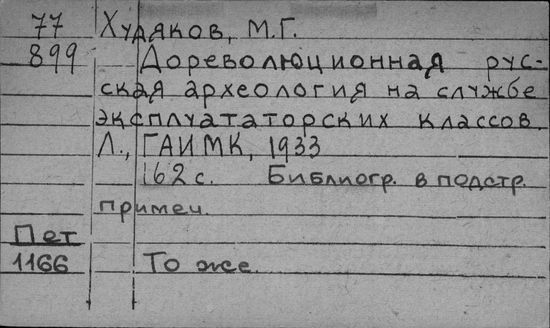 77 Худяков, М.Г.
899 Дореволюционная рус-
ская археология на службе
эксплуататорских классов.
Л., ГАИМК, 1933
162 с. Библиогр. в подстр.
примеч.
Пет
1166 То же.